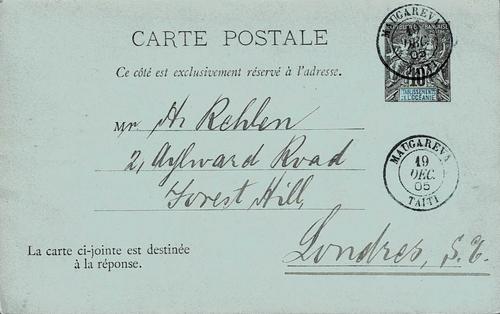 CARTE POSTALE
Ce côté est exclusivement réservé à l'adresse.
MAUGAREVA
19
DÉC.
05
10
ÉTABLISSEMENTS
DE L'OCÉANIE
Mr H. Rehlen
2, Aylward Road
Forest Hill,
Londres, S.E.
MAUGAREVA
19
DÉC.
05
TAITI
La carte ci-jointe est destinée
à la réponse.